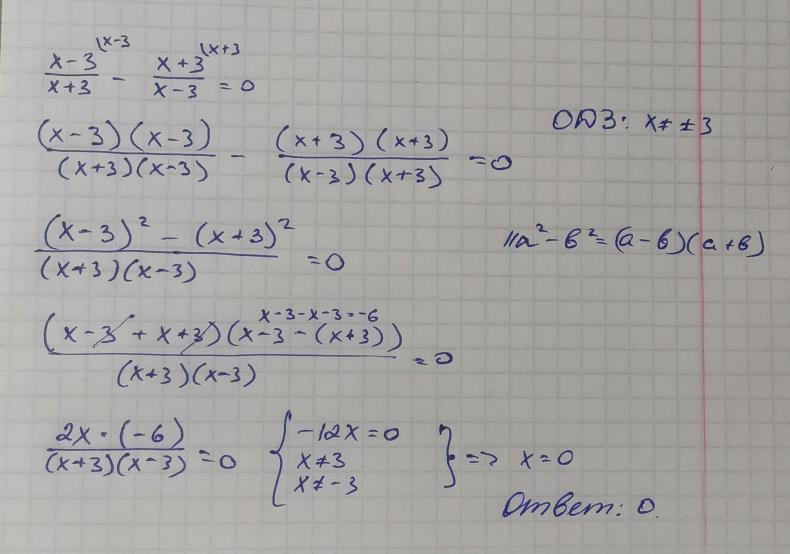 (x-3)/(x+3) \x-3 - (x+3)/(x-3) \x+3 = 0
ОДЗ: x ≠ ±3
(x-3)(x-3)/(x+3)(x-3) - (x+3)(x+3)/(x-3)(x+3) = 0
(x-3)² - (x+3)²/(x+3)(x-3) = 0
//a² - в² = (a-в)(a+в)
x-3-x-3=-6
(x-3+x+3)(x-3-(x+3))/(x+3)(x-3) = 0
2x·(-6)/(x+3)(x-3) = 0 { -12x=0 x≠3 x≠-3 } => x=0
Ответ: 0.